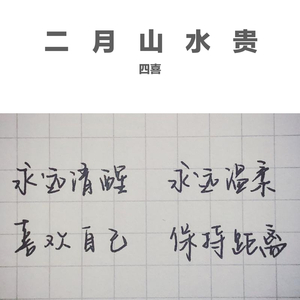 二月山水贵
四喜
永远清醒 永远温柔
喜欢自己 保持距离